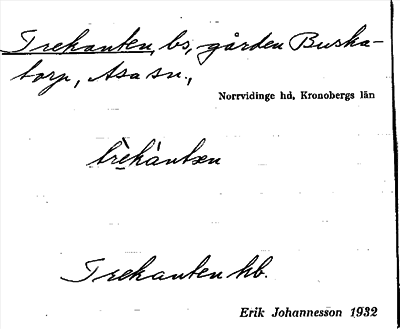 Trekanten, bs, gården Buska-
torp, Asa sn.,
Norrvidinge hd, Kronobergs län
trèkàntən
Trekanten hb.
Erik Johannesson 1932